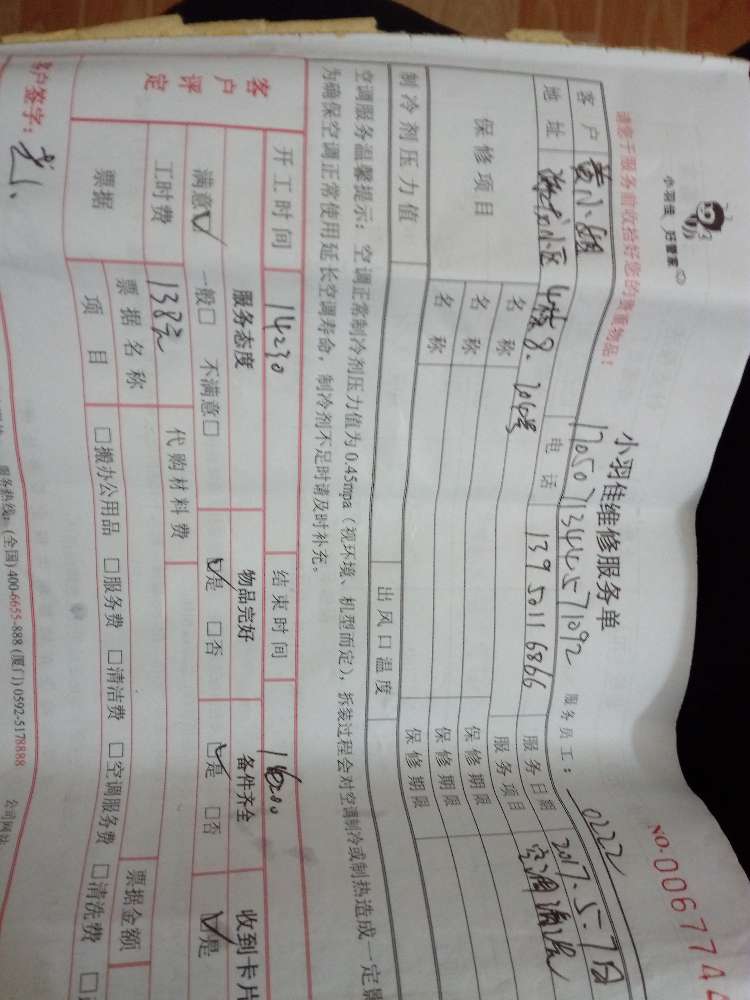 小羽佳 好管家
请您于服务前收拾好您的贵重物品！
小羽佳维修服务单
NO.0067744
1705071344571092 服务员工： 0222
客户 电话 139 5011 6866 服务日期 2017.5.7日
地址 小区 4栋8.204号 服务项目 空调清洗
保修项目 名称 保修期限
名称 保修期限
名称 保修期限
制冷剂压力值 出风口温度
空调服务温馨提示：空调正常制冷剂压力值为0.45mpa（视环境、机型而定），拆装过程会对空调制冷或制热造成一定影
为确保空调正常使用延长空调寿命，制冷剂不足时请及时补充。
开工时间 14:30 结束时间
客户评定 服务态度 物品完好 备件齐全 收到卡片
满意☑ 一般□ 不满意□ ☑是 □否 ☑是 □否 ☑是
工时费 138元 代购材料费
票据 票据名称 票据金额
项目 □搬办公用品 □服务费 □清洁费 □空调服务费 □清洗费
客户签字：
服务热线：(全国)400-6655-888 (厦门)0592-5178888 公司网站